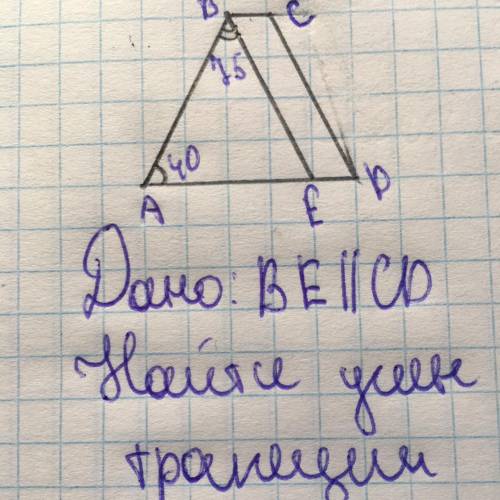 B C
75
40
A E D
Дано: BE||CD
Найти углы
трапеции